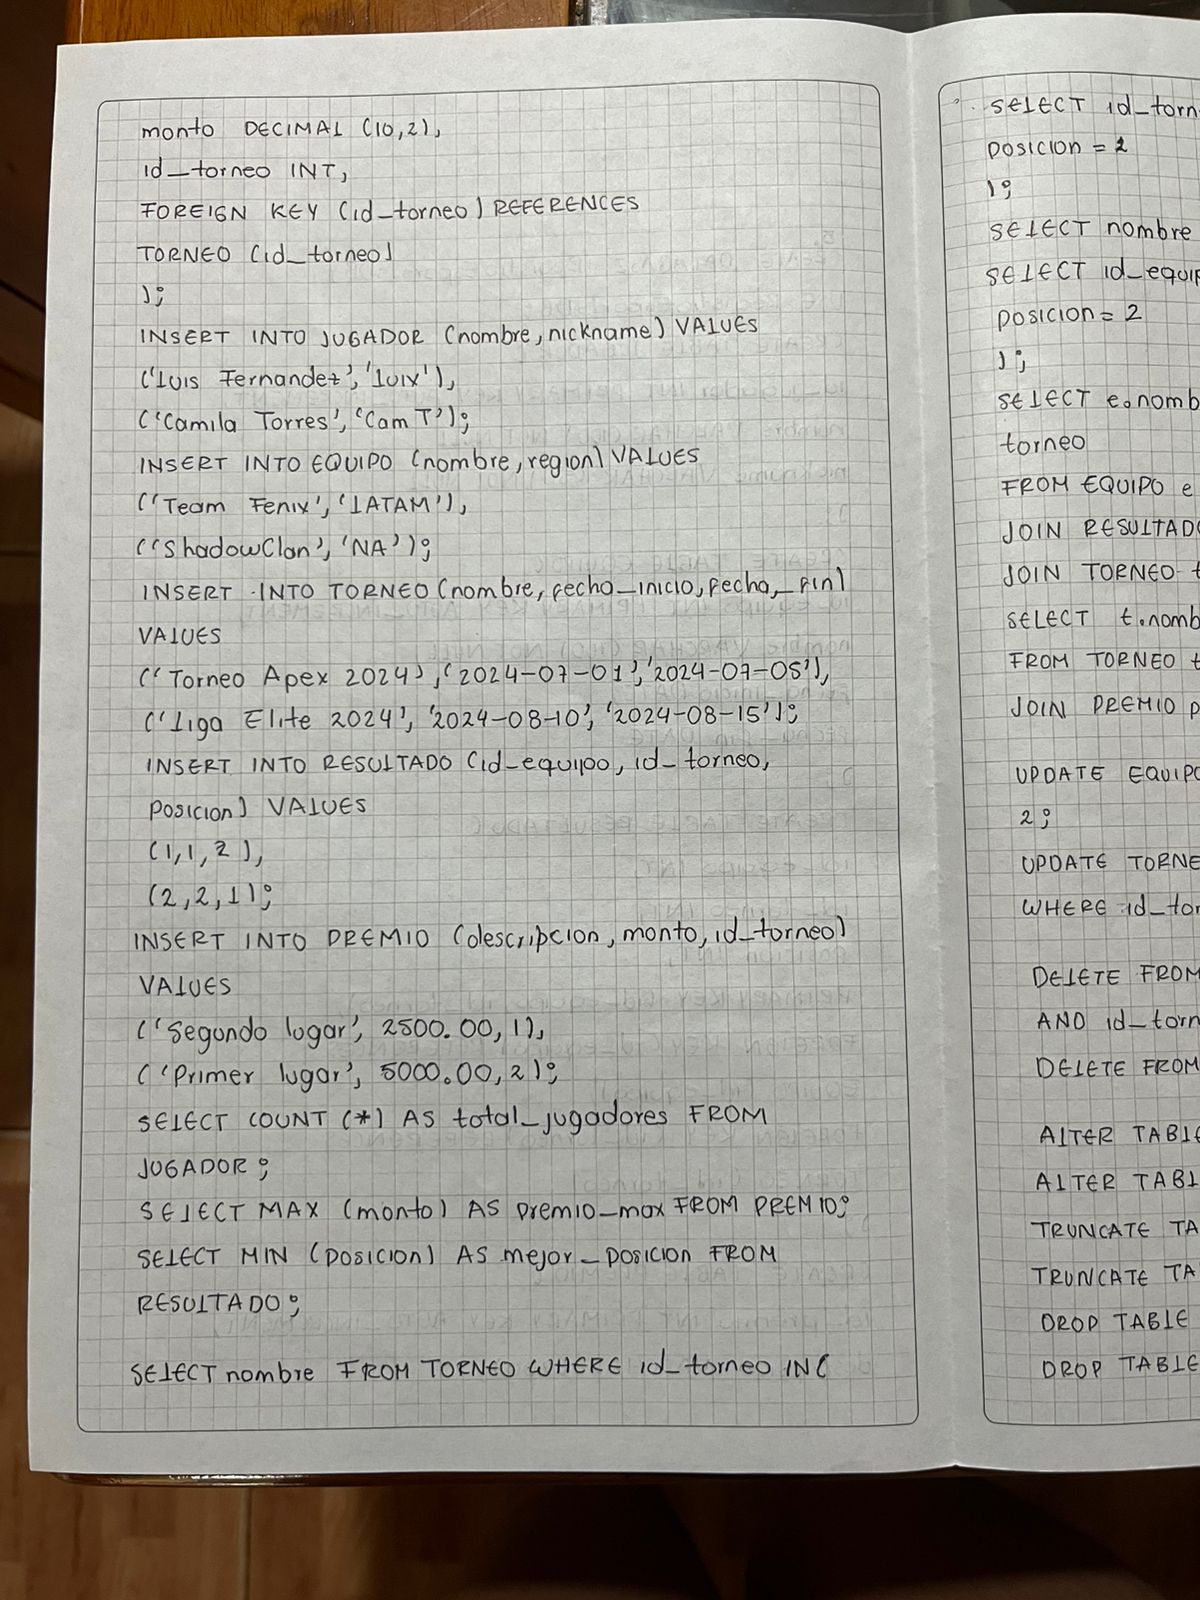 monto DECIMAL (10,2),
id_torneo INT,
FOREIGN KEY (id_torneo) REFERENCES
TORNEO (id_torneo)
);
INSERT INTO JUGADOR (nombre, nickname) VALUES
('Luis Fernandez', 'Luix'),
('Camila Torres', 'Cam T');
INSERT INTO EQUIPO (nombre, region) VALUES
('Team Fenix', 'LATAM'),
('ShadowClan', 'NA');
INSERT INTO TORNEO (nombre, fecha_inicio, fecha_fin)
VALUES
('Torneo Apex 2024', '2024-07-01', '2024-07-05'),
('Liga Elite 2024', '2024-08-10', '2024-08-15');
INSERT INTO RESULTADO (id_equipo, id_torneo,
posicion) VALUES
(1,1,2),
(2,2,1);
INSERT INTO PREMIO (descripcion, monto, id_torneo)
VALUES
('Segundo lugar', 2500.00, 1),
('Primer lugar', 5000.00, 2);
SELECT COUNT (*) AS total_jugadores FROM
JUGADOR;
SELECT MAX (monto) AS premio_max FROM PREMIO;
SELECT MIN (posicion) AS mejor_posicion FROM
RESULTADO;
SELECT nombre FROM TORNEO WHERE id_torneo IN(
SELECT id_torn
posicion = 2
);
SELECT nombre
SELECT id_equip
posicion = 2
);
SELECT e.nomb
torneo
FROM EQUIPO e
JOIN RESULTADO
JOIN TORNEO t
SELECT t.nomb
FROM TORNEO t
JOIN PREMIO p
UPDATE EQUIPO
2;
UPDATE TORNE
WHERE id_tor
DELETE FROM
AND id_torn
DELETE FROM
ALTER TABLE
ALTER TABL
TRUNCATE TA
TRUNCATE TA
DROP TABLE
DROP TABLE